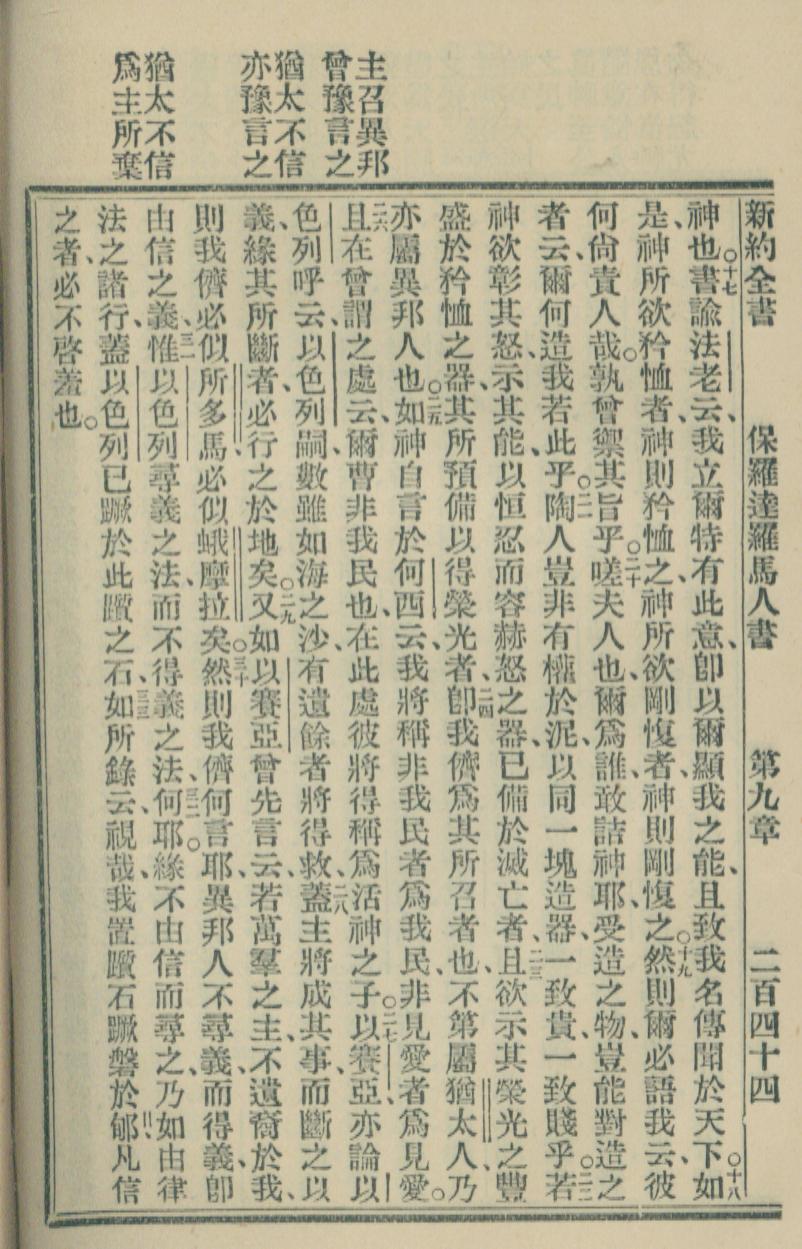 主召異邦
曾豫言之
猶太不信
亦豫言之
猶太不信
爲主所棄
新約全書 保羅達羅馬人書 第九章 二百四十四
神也。十七書諭法老云、我立爾特有此意、卽以爾顯我之能、且致我名傳聞於天下。十八如
是、神所欲矜恤者、神則矜恤之、神所欲剛愎者、神則剛愎之。十九然則爾必語我云、彼
何尙責人哉。孰曾禦其旨乎。二十嗟夫人也、爾爲誰、敢詰神耶、受造之物、豈能對造之
者云、爾何造我若此乎。二一陶人豈非有權於泥、以同一塊造器、一致貴、一致賤乎。二二若
神欲彰其怒、示其能、以恒忍而容赫怒之器、已備於滅亡者、二三且欲示其榮光之豐
盛於矜恤之器、其所預備以得榮光者、二四卽我儕爲其所召者也、不第屬猶太人、乃
亦屬異邦人也。二五如神自言於何西云、我將稱非我民者爲我民、非見愛者爲見愛。
二六且在曾謂之處云、爾曹非我民也、在此處彼將得稱爲活神之子。二七以賽亞亦論以
色列呼云、以色列嗣、數雖如海之沙、有遺餘者將得救、二八蓋主將成其事、而斷之以
義、緣其所斷者、必行之於地矣。二九又如以賽亞曾先言云、若萬羣之主、不遺裔於我、
則我儕必似所多馬、必似蛾摩拉矣。三十然則我儕何言耶、異邦人不尋義、而得義、卽
由信之義、三一惟以色列尋義之法、而不得義之法、三二何耶。緣不由信而尋之、乃如由律
法之諸行、蓋以色列已蹶於此躓之石、三三如所錄云、視哉、我置躓石蹶磐於郇、凡信
之者、必不啓羞也。